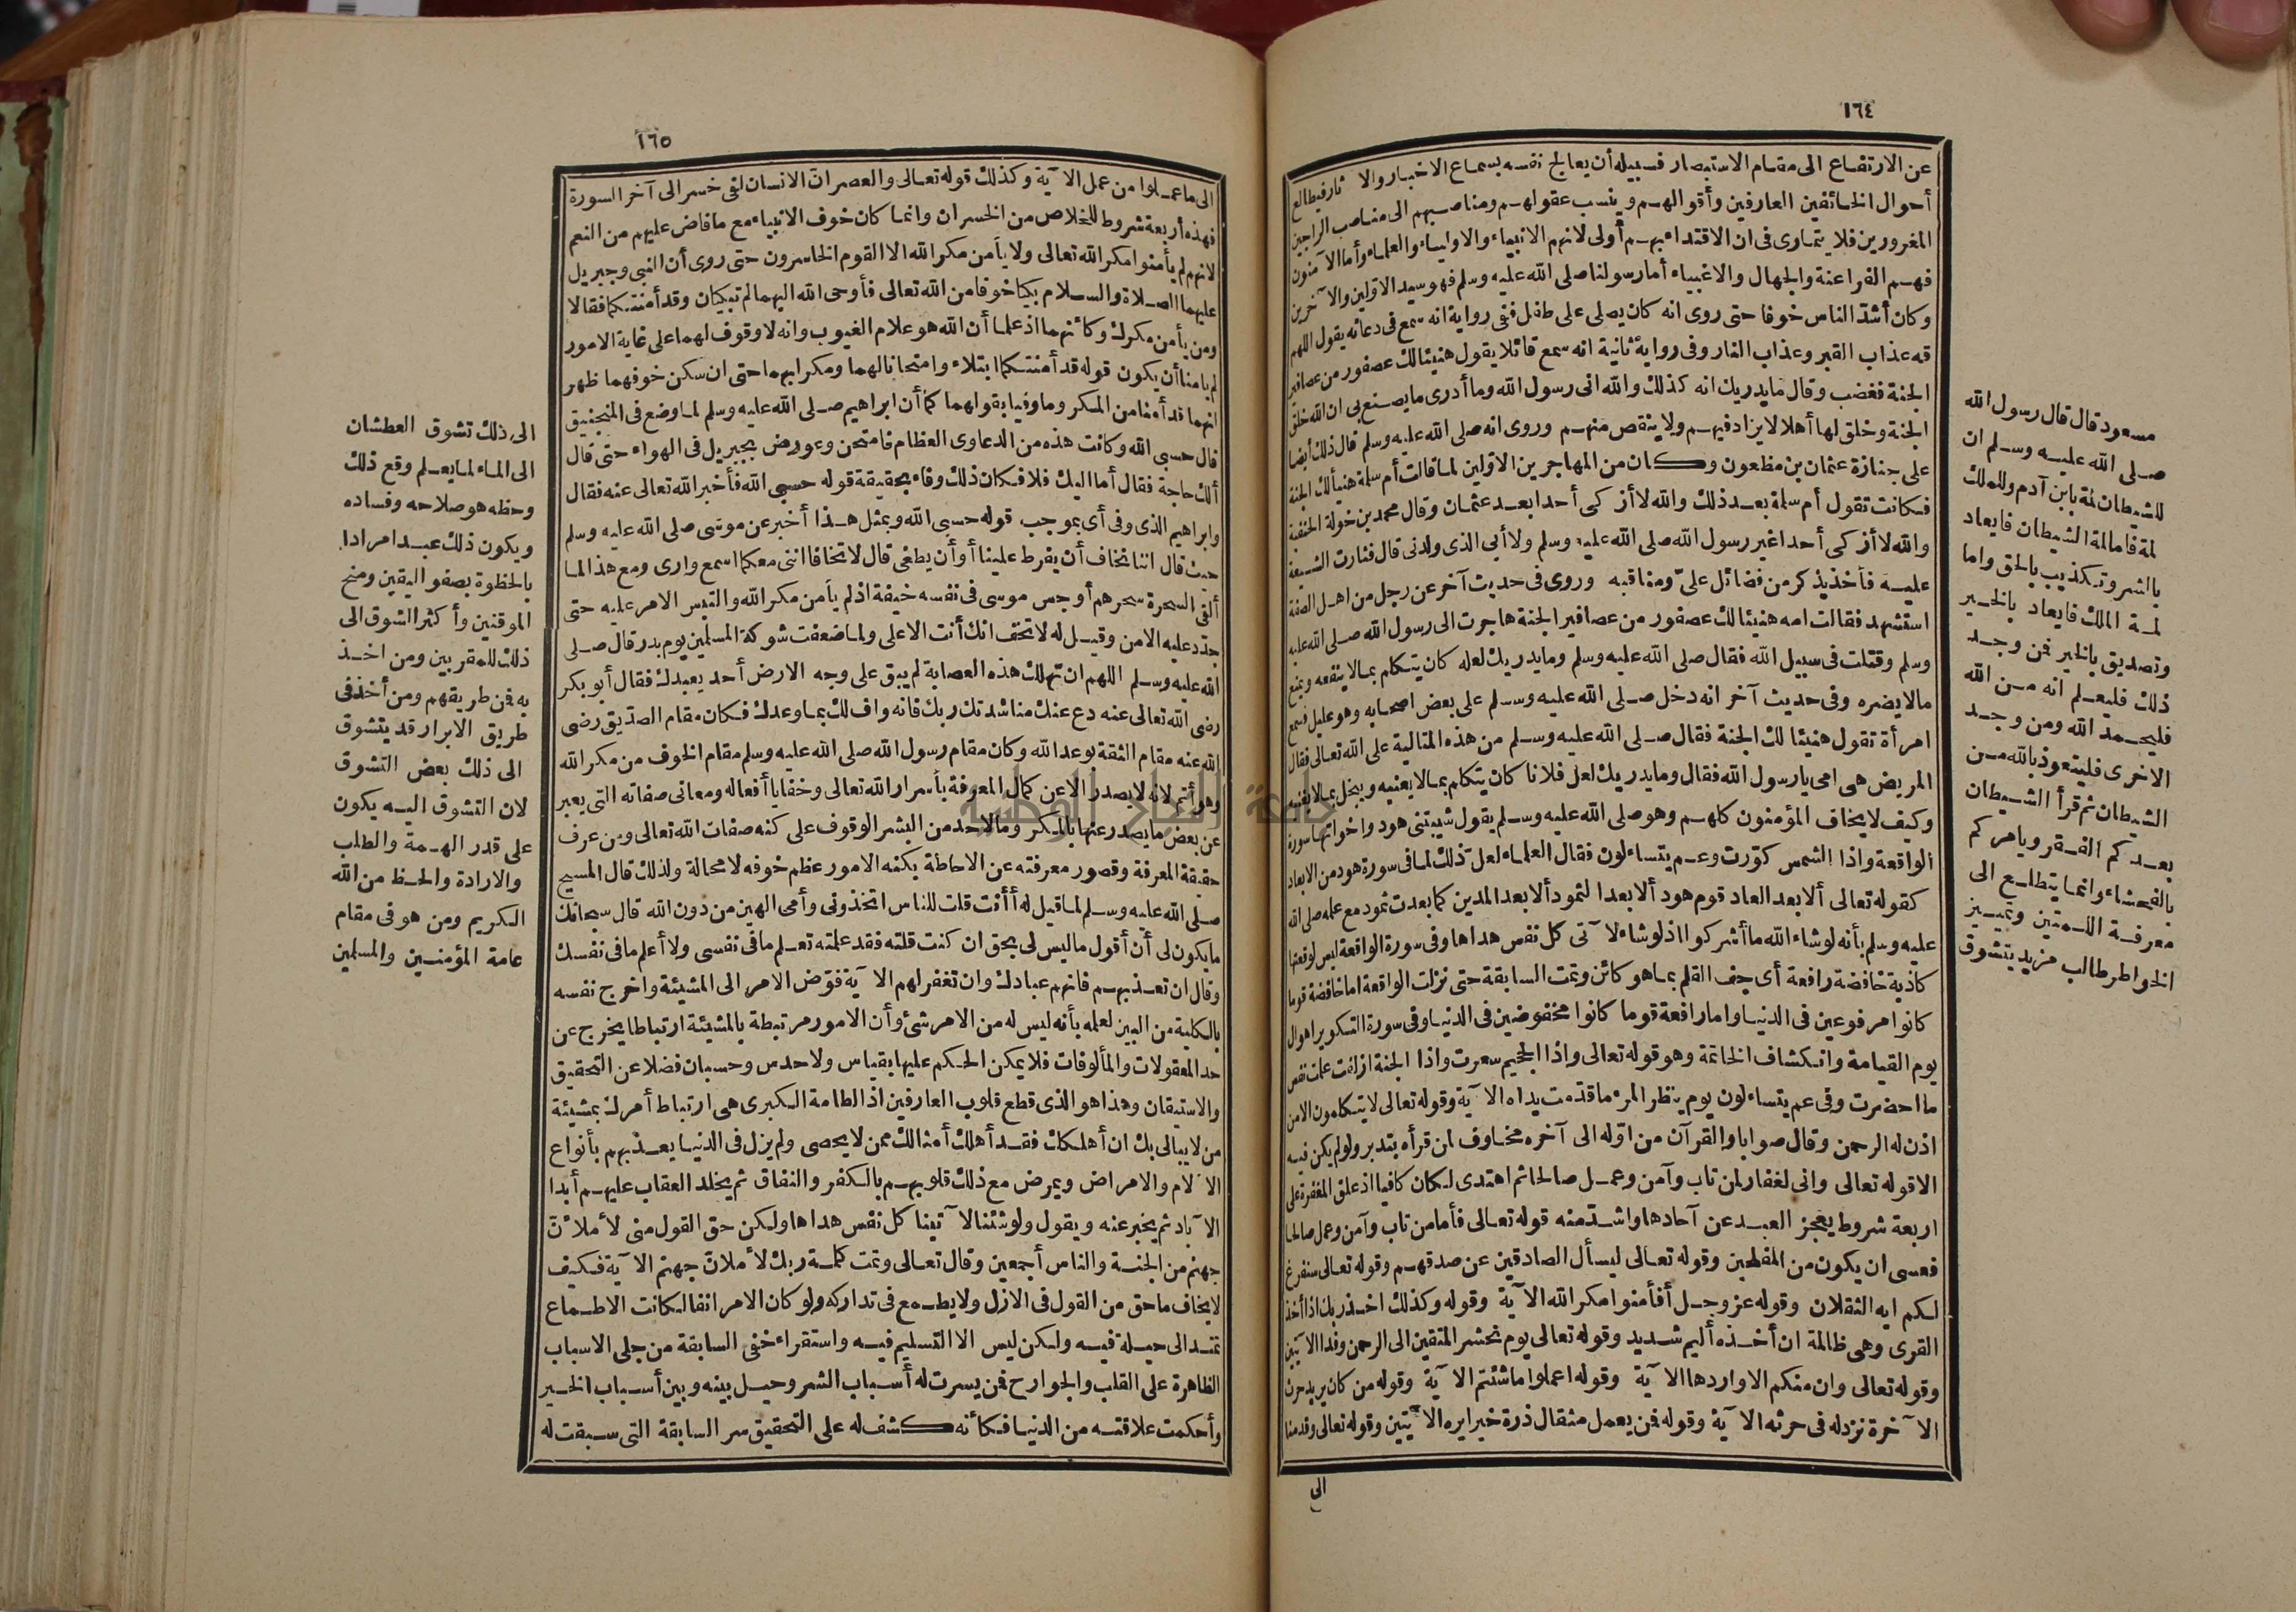 ١٦٤
عن الارتفاع الى مقام الاستبصار فسبيله أن يعالج نفسه بسماع الاخبار والا ثار فيطالع
أحوال الخائفين العارفين وأقوالهم وينسب عقولهم ومناصبهم الى مناصب الراجين
المغرورين فلا يتمارى فى ان الاقتداء بهم أولى لانهم الانبياء والاولياء والعلماء وأما الا منون
فهم الفراعنة والجهال والاغبياء أما رسولنا صلى الله عليه وسلم فهو سيد الاولين والا خرين
وكان أشد الناس خوفا حتى روى انه كان يصلى على طفل ففى رواية انه سمع فى دعائه يقول اللهم
قه عذاب القبر وعذاب النار وفى رواية ثانية انه سمع قائلا يقول هنيئا لك عصفور من عصافير
الجنة فغضب وقال ما يدريك انه كذلك والله انى رسول الله وما أدرى ما يصنع بى ان الله خلق
الجنة وخلق لها أهلا لا يزاد فيهم ولا ينقص منهم وروى انه صلى الله عليه وسلم قال ذلك أيضا
على جنازة عثمان بن مظعون وكان من المهاجرين الاولين لما قالت أم سلمة هنيأ لك الجنة
فكانت تقول أم سلمة بعد ذلك والله لا أزكى أحدا بعد عثمان وقال محمد بن خولة الحنفية
والله لا أزكى أحدا غير رسول الله صلى الله عليه وسلم ولا أبى الذى ولدنى قال فثارت الشيعة
عليه فأخذ يذكر من فضائل علىّ ومناقبه وروى فى حديث آخر عن رجل من اهل الصفة
استشهد فقالت امه هنيئا لك عصفور من عصافير الجنة هاجرت الى رسول الله صلى الله عليه
وسلم وقتلت فى سبيل الله فقال صلى الله عليه وسلم وما يدريك لعله كان يتكلم بما لا ينفعه ويمنع
مالا يضره وفى حديث آخر انه دخل صلى الله عليه وسلم على بعض اصحابه وهو عليل فسمع
امرأة تقول هنيئا لك الجنة فقال صلى الله عليه وسلم من هذه المتالية على الله تعالى فقال
المريض هى امى يا رسول الله فقال وما يدريك لعل فلانا كان يتكلم بما لا يعنيه ويبخل بما لا يغنيه
وكيف لا يخاف المؤمنون كلهم وهو صلى الله عليه وسلم يقول شيبتنى هود واخواتها سورة
الواقعة واذا الشمس كوّرت وعم يتساءلون فقال العلماء لعل ذلك لما فى سورة هود من الابعاد
كقوله تعالى ألا بعد العاد قوم هود ألا بعدا لثمود ألا بعدا لمدين كما بعدت ثمود مع علمه صلى الله
عليه وسلم بأنه لو شاء الله ما أشركوا اذ لو شاء لا تى كل نفس هداها وفى سورة الواقعة ليس لوقعتها
كاذبة خافضة رافعة أى جف القلم بما هو كائن وتمت السابقة حتى نزلت الواقعة اما خافضة قوما
كانوا مرفوعين فى الدنيا واما رافعة قوما كانوا مخفوضين فى الدنيا وفى سورة التكوير اهوال
يوم القيامة وانكشاف الخاتمة وهو قوله تعالى واذا الجحيم سعرت واذا الجنة ازلفت علمت نفس
ما احضرت وفى عم يتساءلون يوم ينظر المرء ما قدّمت يداه الا ية وقوله تعالى لا يتكلمون الا من
اذن له الرحمن وقال صوابا والقرآن من اوّله الى آخره مخاوف لمن قرأه بتدبر ولو لم يكن فيه
الا قوله تعالى وانى لغفار لمن تاب وآمن وعمل صالحا ثم اهتدى لكان كافيا اذ علق المغفرة على
اربعة شروط يعجز العبد عن آحادها واشدّ منه قوله تعالى فأما من تاب وآمن وعمل صالحا
فعسى ان يكون من المفلحين وقوله تعالى ليسأل الصادقين عن صدقهم وقوله تعالى سنفرغ
لكم ايه الثقلان وقوله عز وجل أفأمنوا مكر الله الا ية وقوله وكذلك اخذ ربك اذا أخذ
القرى وهى ظالمة ان أخذه أليم شديد وقوله تعالى يوم نحشر المتقين الى الرحمن وفدا الا يتين
وقوله تعالى وان منكم الا واردها الا ية وقوله اعملوا ما شئتم الا ية وقوله من كان يريد حرث
الا خرة نزد له فى حرثه الا ية وقوله فمن يعمل مثقال ذرة خيرا يره الا يتين وقوله تعالى وقدمنا
الى
مسعود قال قال رسول الله
صلى الله عليه وسلم ان
للشيطان لمة بابن آدم وللملك
لمة فاما لمة الشيطان فايعاد
بالشر وتكذيب بالحق واما
لمة الملك فايعاد بالخير
وتصديق بالخير فمن وجد
ذلك فليعلم انه من الله
فليحمد الله ومن وجد
الاخرى فليتعوذ بالله من
الشيطان ثم قرأ الشيطان
يعدكم الفقر ويامركم
بالفحشاء وانما يتطلع الى
معرفة اللمتين وتمييز
الخواطر طالب مزيد يتشوق
١٦٥
الى ما عملوا من عمل الا ية وكذلك قوله تعالى والعصر ان الانسان لفى خسر الى آخر السورة
فهذه أربعة شروط للخلاص من الخسران وانما كان خوف الانبياء مع ما فاض عليهم من النعم
لانهم لم يأمنوا مكر الله تعالى ولا يأمن مكر الله الا القوم الخاسرون حتى روى أن النبى وجبريل
عليهما الصلاة والسلام بكيا خوفا من الله تعالى فأوحى الله اليهما لم تبكيان وقد أمنتكما فقالا
ومن يأمن مكرك وكأنهما اذ علما أن الله هو علام الغيوب وانه لا وقوف لهما على غاية الامور
لم يأمنا أن يكون قوله قد أمنتكما ابتلاء وامتحانا لهما ومكرا بهما حتى ان سكن خوفهما ظهر
انهما قد أمنا من المكر وما وفيا بقولهما كما أن ابراهيم صلى الله عليه وسلم لما وضع فى المنجنيق
قال حسبى الله وكانت هذه من الدعاوى العظام فامتحن وعورض بجبريل فى الهواء حتى قال
ألك حاجة فقال أما اليك فلا فكان ذلك وفاء بحقيقة قوله حسبى الله فأخبر الله تعالى عنه فقال
وابراهيم الذى وفى أى بموجب قوله حسبى الله وبمثل هذا أخبر عن موسى صلى الله عليه وسلم
حيث قال اننا نخاف أن يفرط علينا أو أن يطغى قال لا تخافا اننى معكما اسمع وارى ومع هذا لما
ألقى السحرة سحرهم أوجس موسى فى نفسه خيفة اذ لم يأمن مكر الله والتبس الامر عليه حتى
جدّد عليه الامن وقيل له لا تخف انك أنت الاعلى ولما ضعفت شوكة المسلمين يوم بدر قال صلى
الله عليه وسلم اللهم ان تهلك هذه العصابة لم يبق على وجه الارض أحد يعبدك فقال أبو بكر
رضى الله تعالى عنه دع عنك مناشدتك ربك فانه واف لك بما وعدك فكان مقام الصدّيق رضى
الله عنه مقام الثقة بوعد الله وكان مقام رسول الله صلى الله عليه وسلم مقام الخوف من مكر الله
وهو أتم لانه لا يصدر الا عن كمال المعرفة بأسرار الله تعالى وخفايا أفعاله ومعانى صفاته التى يعبر
عن بعض ما يصدر عنها بالمكر وما لاحد من البشر الوقوف على كنه صفات الله تعالى ومن عرف
حقيقة المعرفة وقصور معرفته عن الاحاطة بكنه الامور عظم خوفه لا محالة ولذلك قال المسيح
صلى الله عليه وسلم لما قيل له أأنت قلت للناس اتخذونى وأمى الهين من دون الله قال سبحانك
ما يكون لى أن أقول ما ليس لى بحق ان كنت قلته فقد علمته تعلم ما فى نفسى ولا أعلم ما فى نفسك
وقال ان تعذبهم فانهم عبادك وان تغفر لهم الا ية فوّض الامر الى المشيئة واخرج نفسه
بالكلية من البين لعلمه بأنه ليس له من الامر شئ وأن الامور مرتبطة بالمشيئة ارتباطا يخرج عن
حد المعقولات والمألوفات فلا يمكن الحكم عليها بقياس ولا حدس وحسبان فضلا عن التحقيق
والاستيقان وهذا هو الذى قطع قلوب العارفين اذ الطامة الكبرى هى ارتباط أمرك بمشيئة
من لا يبالى بك ان أهلكك فقد أهلك أمثالك ممن لا يحصى ولم يزل فى الدنيا يعذبهم بأنواع
الا لام والامراض ويمرض مع ذلك قلوبهم بالكفر والنفاق ثم يخلد العقاب عليهم أبدا
الا باد ثم يخبر عنه ويقول ولو شئنا لا تينا كل نفس هداها ولكن حق القول منى لأملأنّ
جهنم من الجنة والناس أجمعين وقال تعالى وتمت كلمة ربك لأملانّ جهنم الا ية فكيف
لا يخاف ما حق من القول فى الازل ولا يطمع فى تداركه ولو كان الامر انفا لكانت الاطماع
تمتد الى حيلة فيه ولكن ليس الا التسليم فيه واستقراء خفى السابقة من جلى الاسباب
الظاهرة على القلب والجوارح فمن يسرت له أسباب الشر وحيل بينه وبين أسباب الخير
وأحكمت علاقته من الدنيا فكأنه كشف له على التحقيق سر السابقة التى سبقت له
الى ذلك تشوق العطشان
الى الماء لما يعلم وقع ذلك
وحظه هو صلاحه وفساده
ويكون ذلك عبدا مرادا
بالحظوة بصفو اليقين ومنح
الموقنين وأكثر التشوق الى
ذلك للمقربين ومن اخذ
به فمن طريقهم ومن أخذ فى
طريق الابرار قد يتشوق
الى ذلك بعض التشوق
لان التشوق اليه يكون
على قدر الهمة والطلب
والارادة والحظ من الله
الكريم ومن هو فى مقام
عامة المؤمنين والمسلمين
جامعة النجاح الوطنية